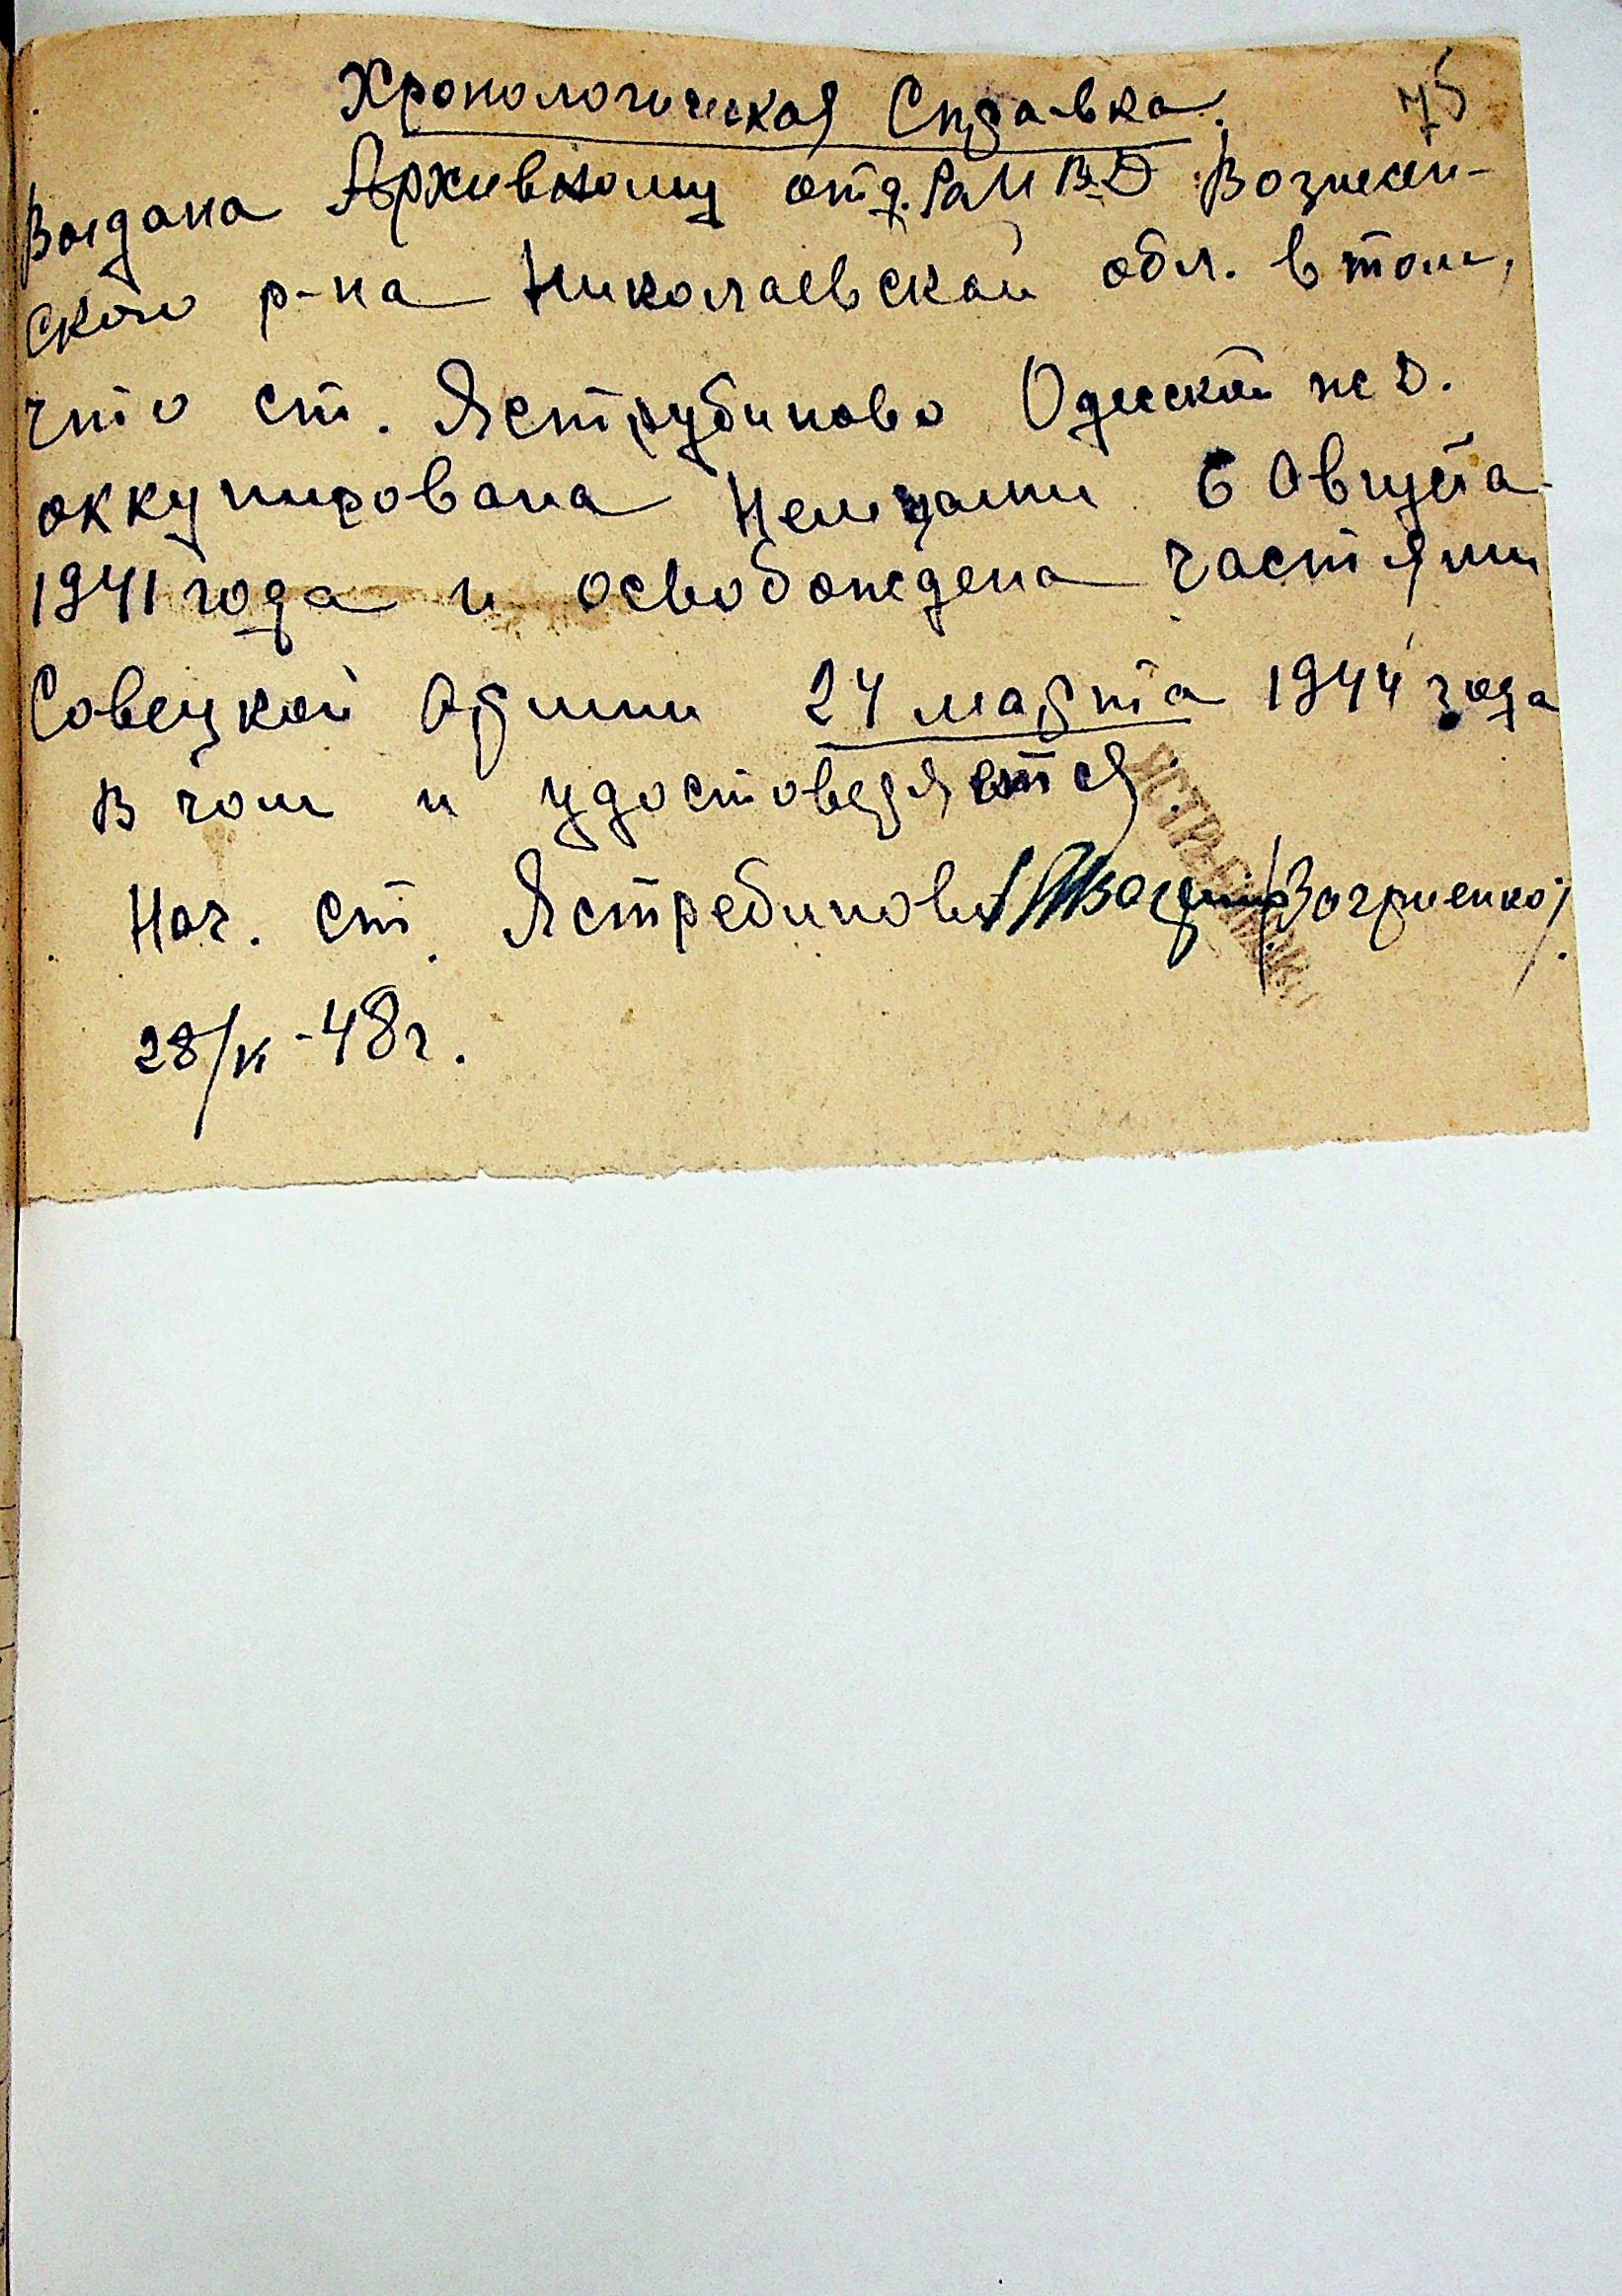 75
Хронологическая Справка.
Выдана Архивному отд. РаМВД Вознесен-
ского р-на Николаевской обл. в том,
что ст. Яструбиново Одесской ж Д.
оккупирована Немцами 6 Августа
1941 года и освобождена частями
Совецкой Армии 24 марта 1944 года
В чом и удостоверяется.
Нач. ст. Ястребиново
28/VI - 48 г.